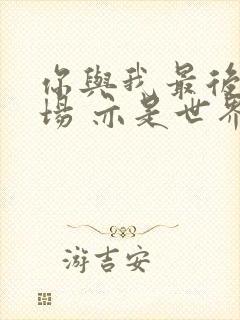 你與我 最後
場 亦是世界
游吉安